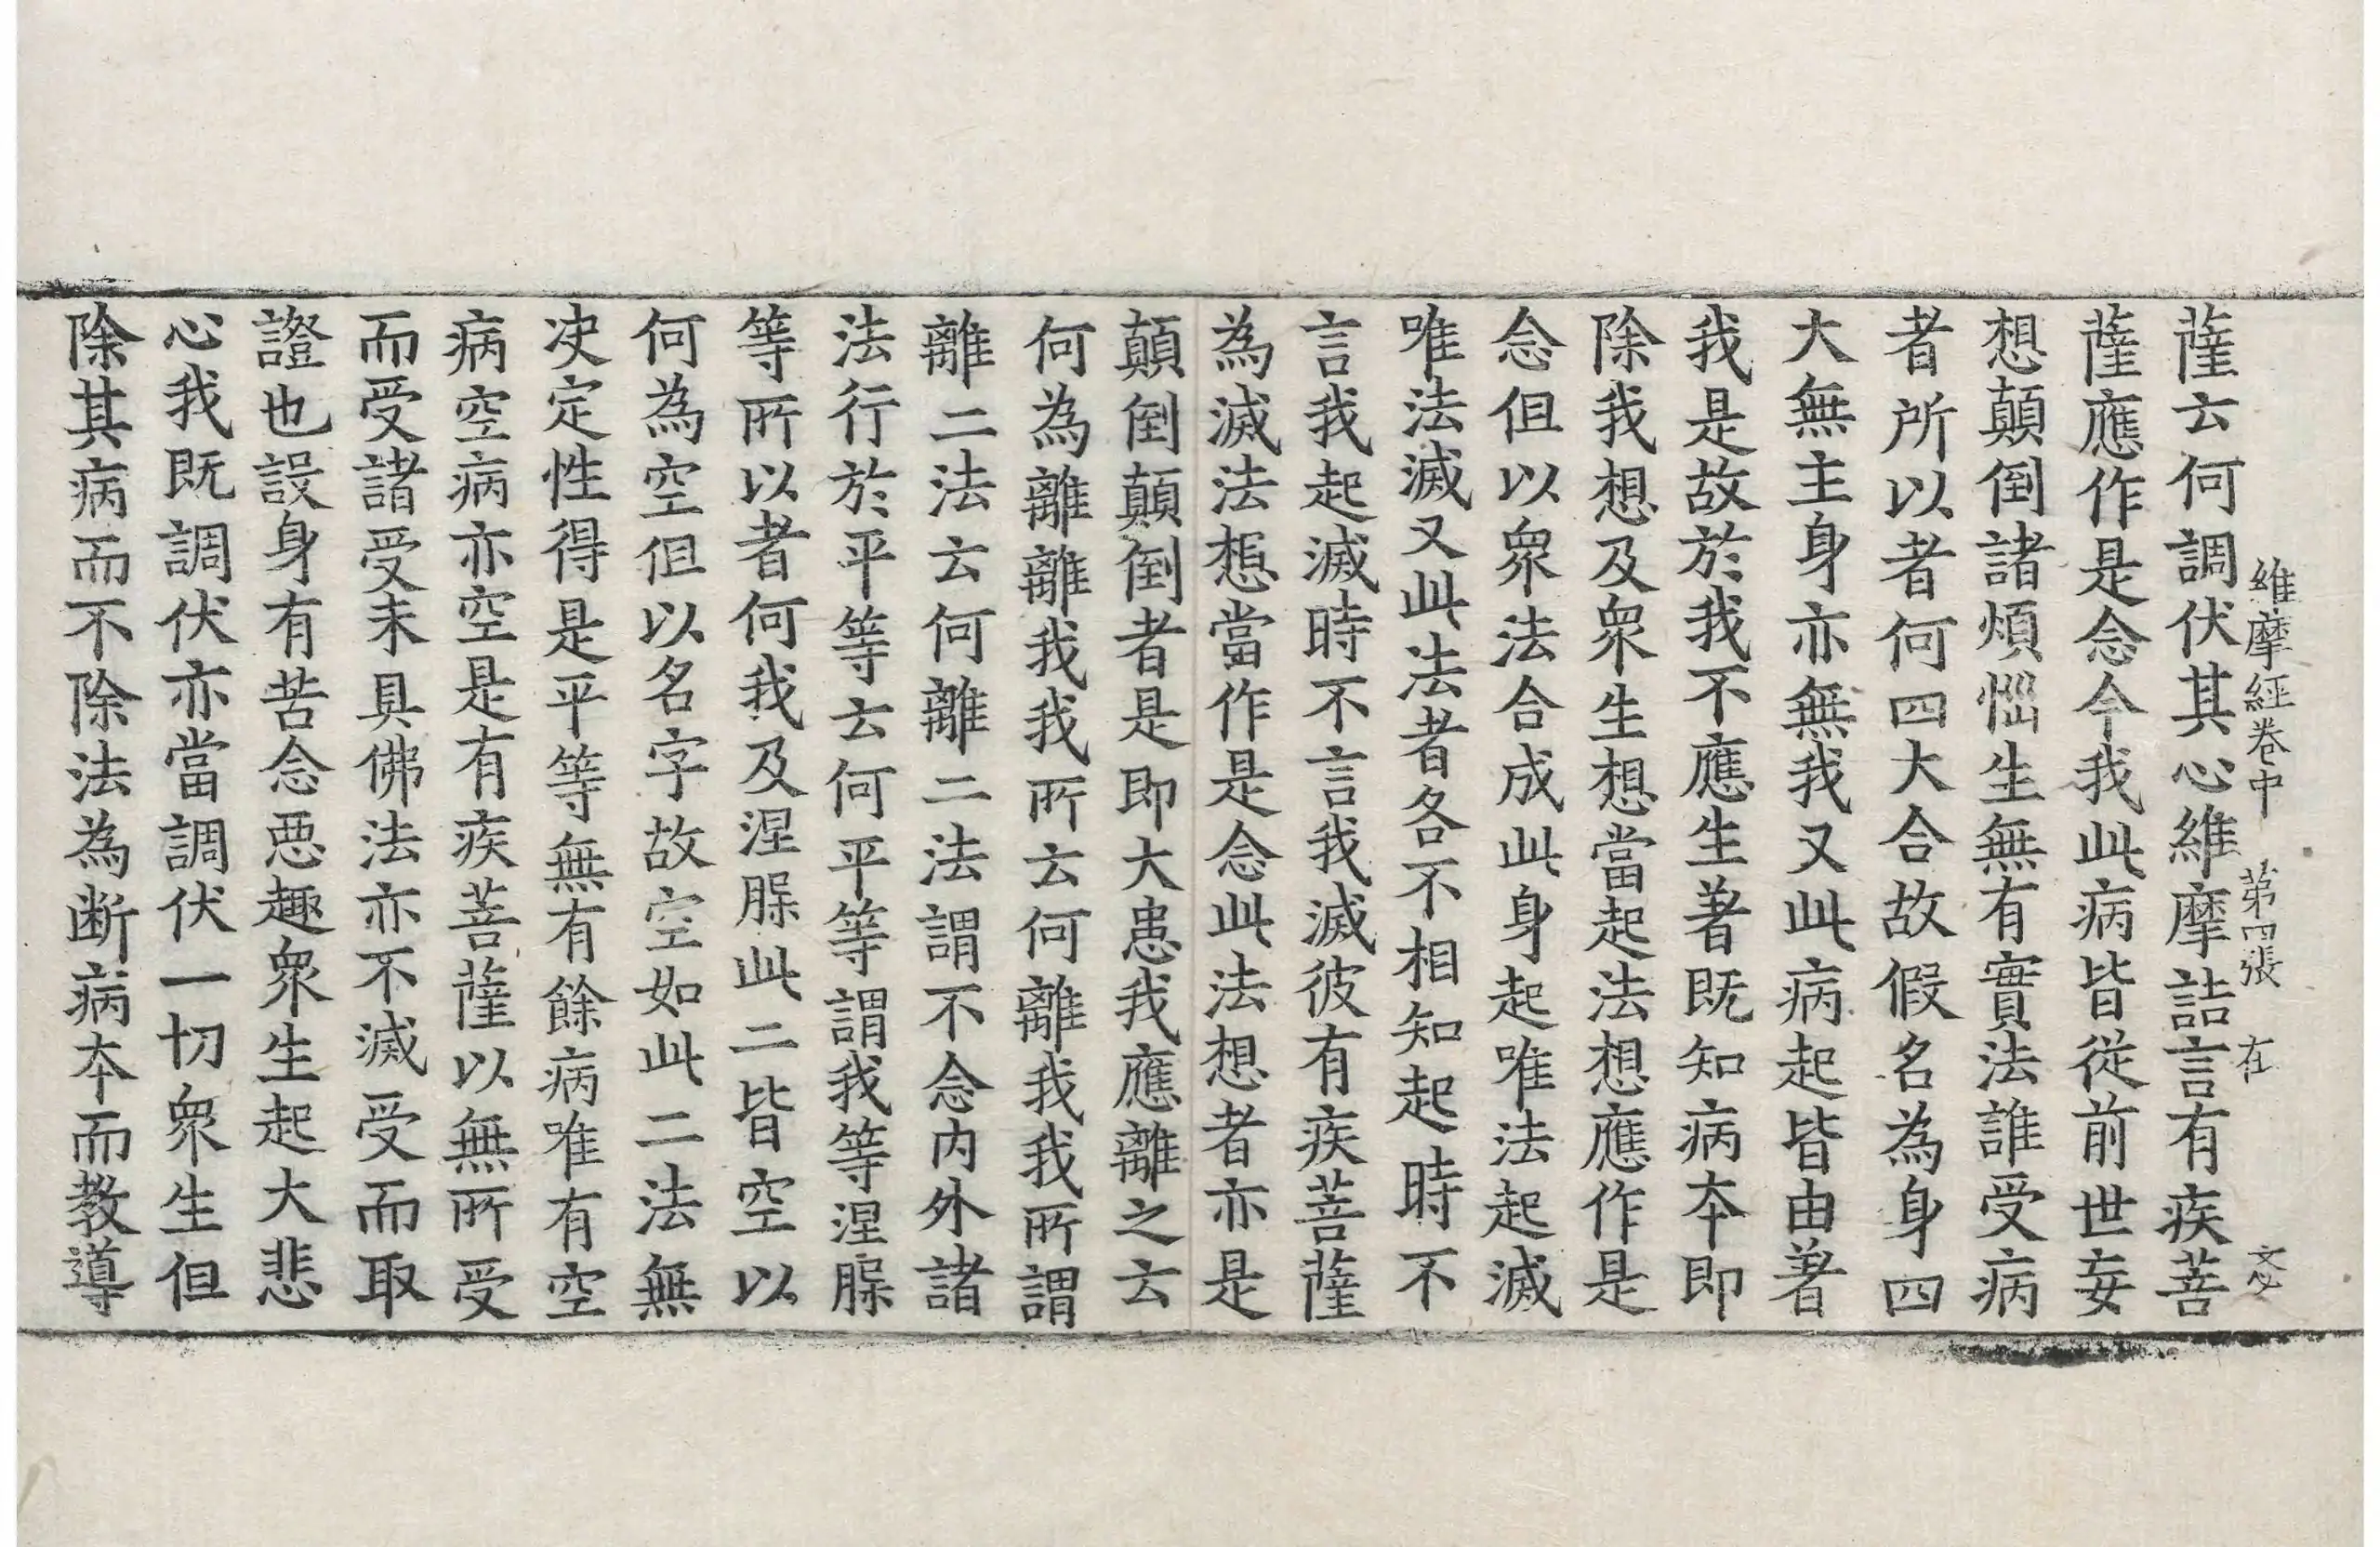 維摩經卷中 第四張 在
薩云何調伏其心維摩詰言有疾菩
薩應作是念今我此病皆從前世妄
想顛倒諸煩惱生無有實法誰受病
者所以者何四大合故假名為身四
大無主身亦無我又此病起皆由著
我是故於我不應生著既知病本即
除我想及衆生想當起法想應作是
念但以衆法合成此身起唯法起滅
唯法滅又此法者各不相知起時不
言我起滅時不言我滅彼有疾菩薩
為滅法想當作是念此法想者亦是
顛倒顛倒者是即大患我應離之云
何為離離我我所云何離我我所謂
離二法云何離二法謂不念内外諸
法行於平等云何平等謂我等涅槃
等所以者何我及涅槃此二皆空以
何為空但以名字故空如此二法無
决定性得是平等無有餘病唯有空
病空病亦空是有疾菩薩以無所受
而受諸受未具佛法亦不滅受而取
證也設身有苦念惡趣衆生起大悲
心我既調伏亦當調伏一切衆生但
除其病而不除法為断病本而教導